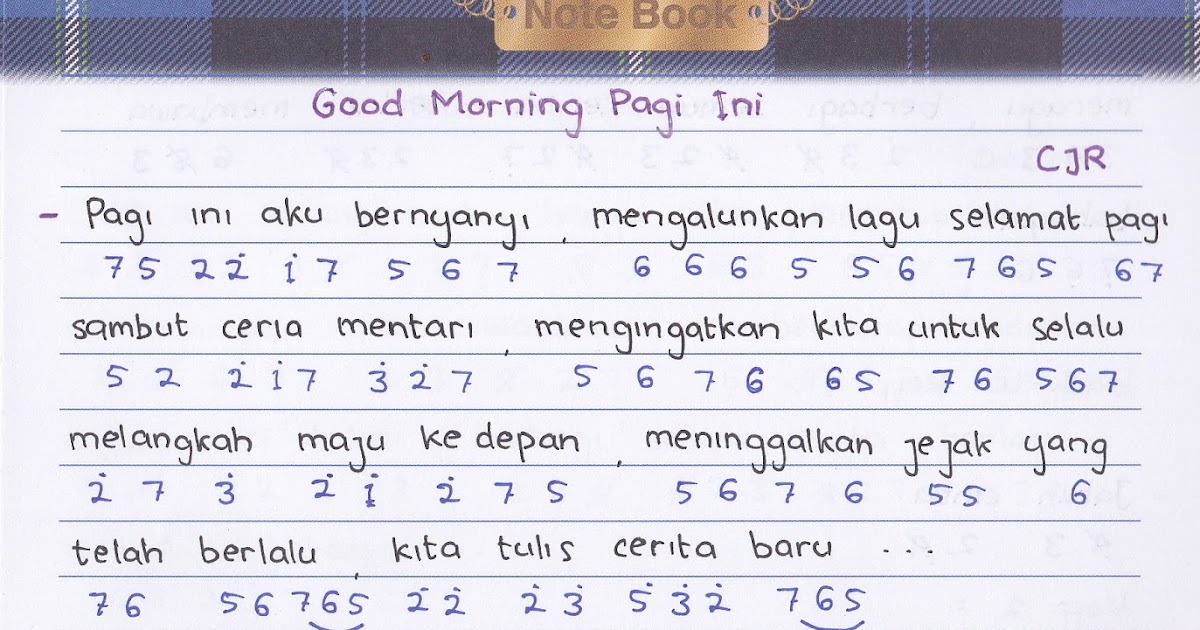 Note Book
Good Morning Pagi Ini
CJR
- Pagi ini aku bernyanyi, mengalunkan lagu selamat pagi
7 5 2 2̇ i̇ 7 5 6 7 6 6 6 5 5 6 7 6 5 6 7
sambut ceria mentari, mengingatkan kita untuk selalu
5 2 2̇ i̇ 7 3̇ 2̇ 7 5 6 7 6 6 5 7 6 5 6 7
melangkah maju ke depan, meninggalkan jejak yang
2̇ 7 3̇ 2̇ i̇ 2̇ 7 5 5 6 7 6 5 5 6
telah berlalu, kita tulis cerita baru ...
7 6 5 6 7 6 5 2̇ 2̇ 2̇ 3̇ 5̇ 3̇ 2̇ 7 6 5